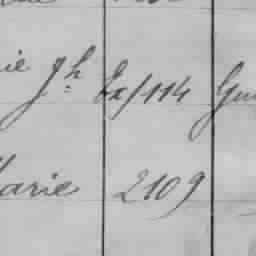 ie Jh Ex/114 Gu
Marie 2109